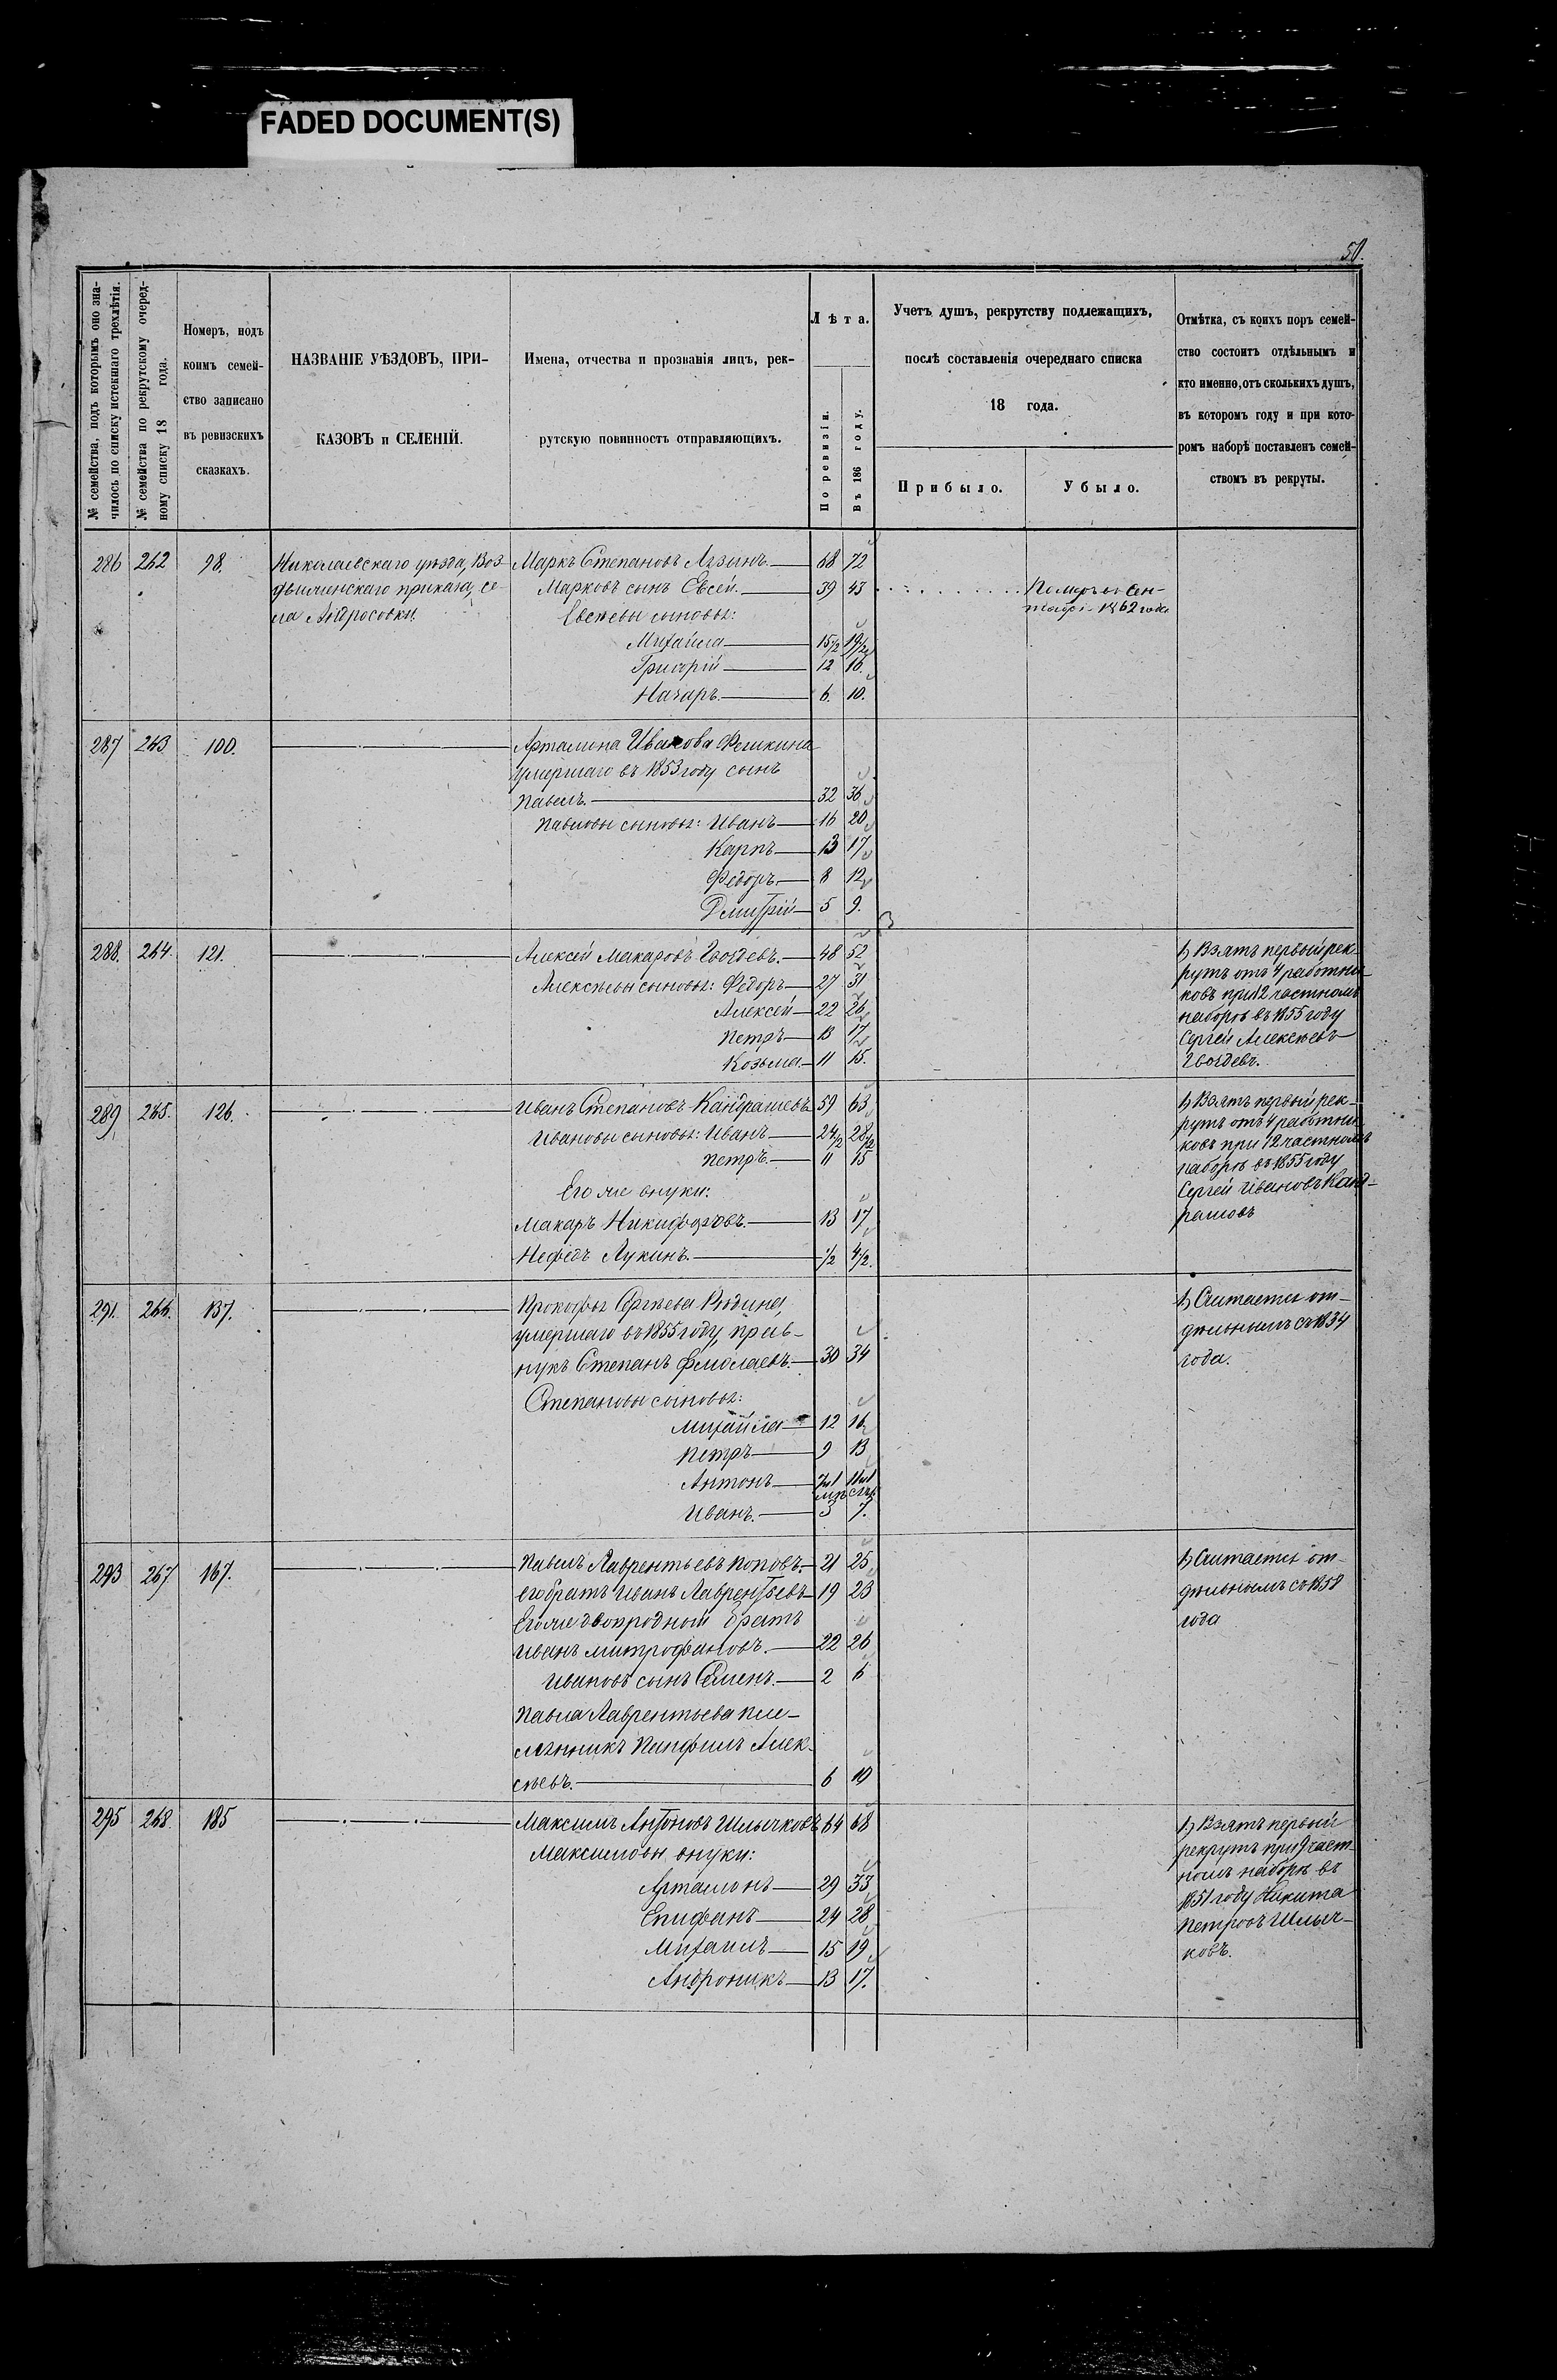 FADED DOCUMENT(S)
50.
№ семейства, подъ которымъ оно зна-
чилось по списку истекшаго трехлѣтія.
№ семейства по рекрутскому очеред-
ному списку 18 года.
Номеръ, подъ
коимъ семей-
ство записано
въ ревизскихъ
сказкахъ.
НАЗВАНІЕ УѢЗДОВЪ, ПРИ-
КАЗОВЪ и СЕЛЕНІЙ.
Имена, отчества и прозванія лицъ, рек-
рутскую повинность отправляющихъ.
Лѣта.
По ревизіи.
Въ 186 году.
Учетъ душъ, рекрутству подлежащихъ,
послѣ составленія очереднаго списка
18 года.
Прибыло.
Убыло.
Отмѣтка, съ коихъ поръ семей-
ство состоитъ отдѣльнымъ и
кто именно, отъ сколькихъ душъ,
въ которомъ году и при кото-
ромъ наборѣ поставленъ семей-
ствомъ въ рекруты.
286 262 98. Николаевскаго уѣзда, Воз- Маркъ Степановъ 68 72
движенскаго приказа, се- Марковъ сынъ Евсей. 39 43 Померъ въ Сен-
ла Андросовки. Евсѣевы сыновья: тябрѣ 1862 года
Михайла 15½ 19½
Григорій 12 16.
Назаръ. 6. 10.
287 263 100. Артамона Иванова Фешкина
умершаго въ 1853 году сынъ
Павелъ. 32 36
Павловы сыновья: Иванъ 16 20
Карпъ 13 17
Федоръ. 8 12
Дмитрій 5 9.
288. 264. 121. Алексей Макаровъ Гвоздевъ. 48 52 1, Взятъ первый рек-
Алексѣевы сыновья: Федоръ 27 31 рутъ отъ 4 работни-
Алексей 22 26 ковъ при 12 частномъ
Петръ 13 17 наборѣ въ 1855 году
Козьма. 11 15. Сергей Алексѣевъ
Гвоздевъ.
289. 265. 126. Иванъ Степановъ Кандрашевъ 59 63 1, Взятъ первый рек-
Ивановы сыновья: Иванъ 24½ 28½ рутъ отъ 4 работни-
Петръ. 11 15 ковъ при 12 частномъ
Его же внуки: наборѣ въ 1855 году
Макаръ Никифоровъ. 13 17 Сергей Ивановъ Канд-
Нефедъ Лукинъ. ½ 4½. рашовъ
291. 266. 137. Прокофья Сергѣева Юдина, 1, Считается от-
умершаго въ 1855 году, прав- дѣльнымъ съ 1834
нукъ Степанъ Фмолаевъ. 30 34 года.
Степановы сыновья:
Михайла 12 16
Петръ 9 13
Антонъ
Иванъ. 3 7.
293 267 167. Павелъ Лаврентьевъ Поповъ. 21 25 1, Считается от-
Его братъ Иванъ Лаврентьевъ 19 23 дѣльнымъ съ 1858
Его же двоюродный братъ года
Иванъ Митрофановъ. 22 26
Ивановъ сынъ Семенъ. 2 6
Павла Лаврентьева пле-
мянникъ Панфилъ Алек-
сѣевъ. 6 10
295 268. 185 Максимъ Антоновъ Шлычковъ 64 68 1, Взятъ первый
Максимовы внуки: рекрутъ при 9 част-
Артамонъ 29 33 номъ наборѣ въ
Епифанъ 24 28 1851 году Никита
Михаилъ 15 19 Петровъ Шлыч-
Андроникъ 13 17. ковъ.